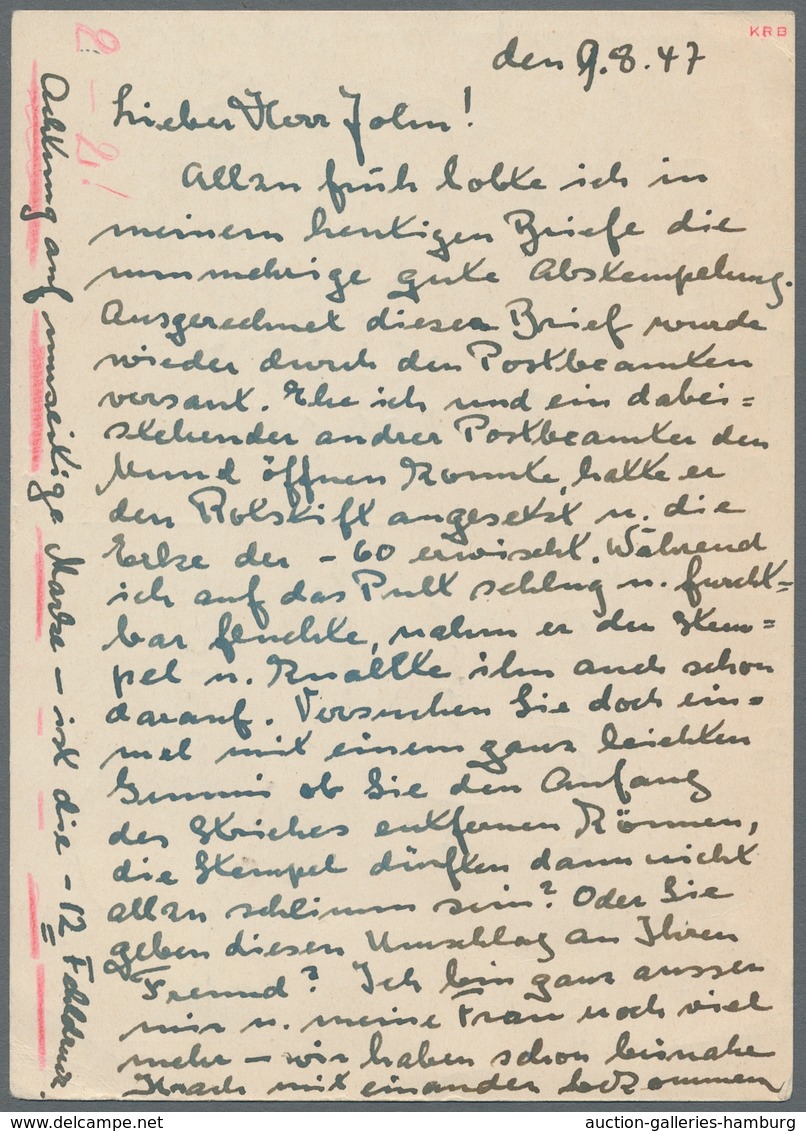 KRB
den 9.8.47
Lieber Herr John!
Allzu früh lobte ich in
meinem heutigen Briefe die
nunmehrige gute Abstempelung.
Ausgerechnet dieser Brief wurde
wieder durch den Postbeamten
versaut. Ehe ich und ein dabei=
stehender andrer Postbeamter den
Mund öffnen konnte, hatte er
den Rotstift angesetzt u. die
Ecke der - 60 erwischt. Während
ich auf das Pult schlug u. furcht=
bar fluchte, nahm er den Stem=
pel u. knallte ihn auch schon
darauf. Versuchen Sie doch ein=
mal mit einem ganz leichten
Gummi ob Sie den Anfang
des Striches entfernen können,
die Stempel dürften dann nicht
allzu schlimm sein? Oder Sie
geben diesen Umschlag an Ihren
Freund? Ich bin ganz ausser
mir u. meine Frau noch viel
mehr - wir haben schon beinahe
Krach miteinander bekommen
Achtung auf umseitige Marke - ist die - 12 Fehldruck.
2 - 2!
auction-galleries-hamburg